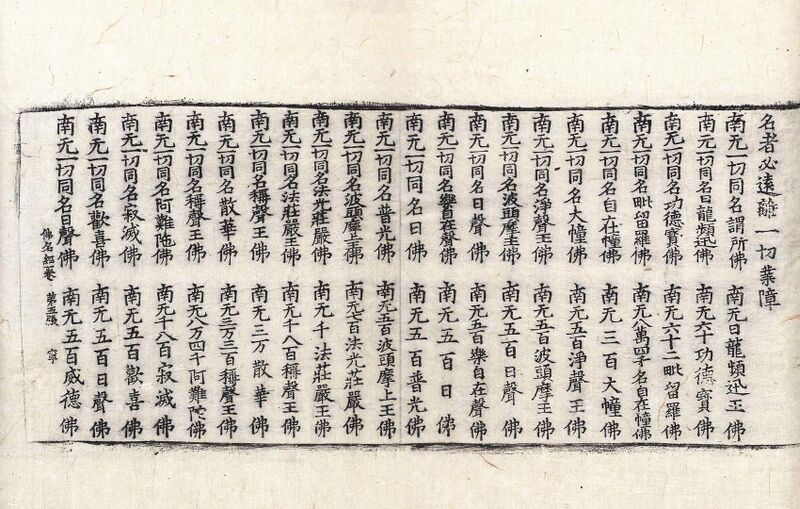 名者必遠離一切業障
南无一切同名謂所佛 南无日龍頻迅王佛
南无一切同名日龍頻迅佛 南无六十功德寶佛
南无一切同名功德寶佛 南无六十二毗留羅佛
南无一切同名毗留羅佛 南无八萬四千名自在幢佛
南无一切同名自在幢佛 南无三百大幢佛
南无一切同名大幢佛 南无五百淨聲王佛
南无一切同名淨聲王佛 南无五百波頭摩王佛
南无一切同名波頭摩王佛 南无五百日聲佛
南无一切同名日聲佛 南无五百樂自在聲佛
南无一切同名樂自在聲佛 南无五百日佛
南无一切同名日佛 南无五百普光佛
南无一切同名普光佛 南无五百波頭摩上王佛
南无一切同名波頭摩上王佛 南无七百法光莊嚴佛
南无一切同名法光莊嚴佛 南无千法莊嚴王佛
南无一切同名法莊嚴王佛 南无千八百稱聲王佛
南无一切同名稱聲王佛 南无三万散華佛
南无一切同名散華佛 南无三万三百稱聲王佛
南无一切同名稱聲王佛 南无八万四千阿難陀佛
南无一切同名阿難陁佛 南无千八百寂滅佛
南无一切同名寂滅佛 南无五百歡喜佛
南无一切同名歡喜佛 南无五百日聲佛
南无一切同名日聲佛 南无五百威德佛
佛名經 卷 第五張